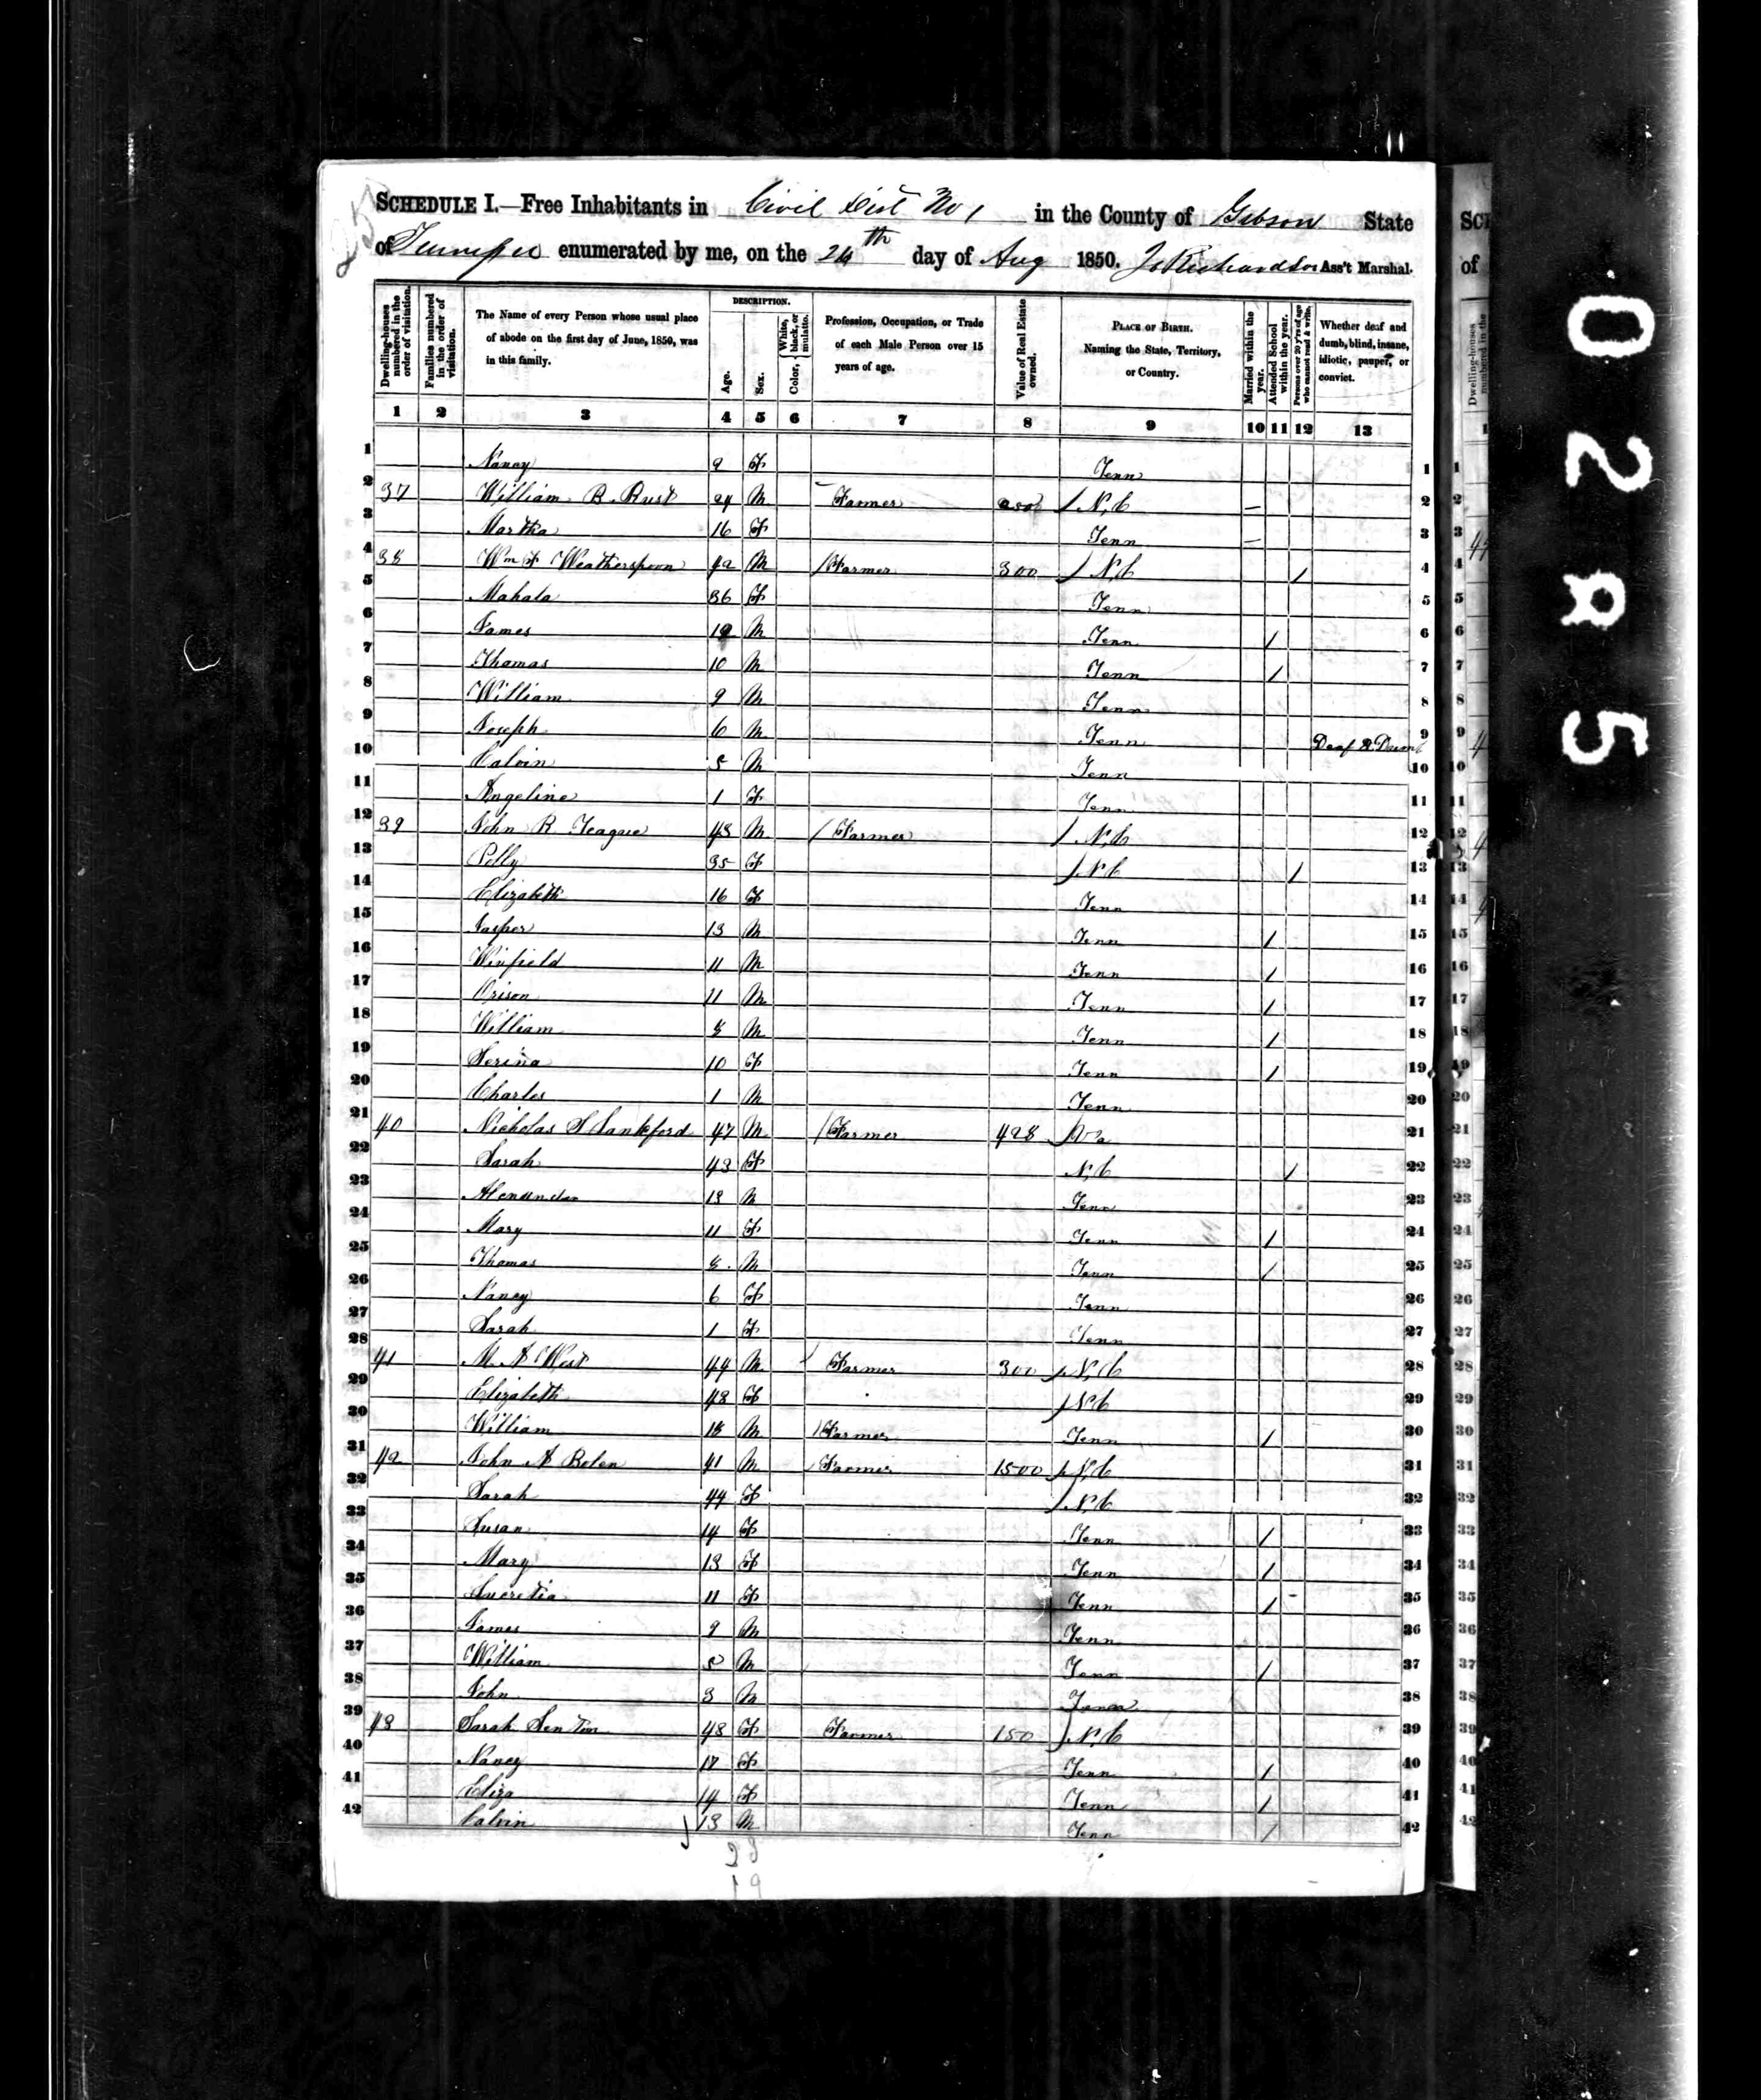 SCHEDULE I.—Free Inhabitants in Civil Dist No 1 in the County of Gibson State
of Tennessee enumerated by me, on the 24th day of Aug 1850. Richardson Ass't Marshal.
Dwelling-houses numbered in the order of visitation.
Families numbered in the order of visitation.
The Name of every Person whose usual place of abode on the first day of June, 1850, was in this family.
DESCRIPTION.
Age.
Sex.
Color, { White, black, or mulatto.
Profession, Occupation, or Trade of each Male Person over 15 years of age.
Value of Real Estate owned.
PLACE OF BIRTH. Naming the State, Territory, or Country.
Married within the year.
Attended School within the year.
Persons over 20 y'rs of age who cannot read & write.
Whether deaf and dumb, blind, insane, idiotic, pauper, or convict.
1 2 3 4 5 6 7 8 9 10 11 12 13
1 Nancy 9 F Tenn 1
2 37 William R. Rust 24 M Farmer / N,C — 2
3 Martha 16 F Tenn — 3
4 38 Wm F Weatherspoon 42 M / Farmer 300 / N,C / 4
5 Mahala 36 F Tenn 5
6 James 12 M Tenn / 6
7 Thomas 10 M Tenn / 7
8 William 9 M Tenn 8
9 Joseph 6 M Tenn Deaf & Dumb 9
10 Calvin 5 M Tenn 10
11 Angeline 1 F Tenn 11
12 39 John R Teague 43 M / Farmer / N,C 12
13 Polly 35 F / N C / 13
14 Elizabeth 16 F Tenn 14
15 Jasper 13 M Tenn / 15
16 Winfield 11 M Tenn / 16
17 Orison 11 M Tenn / 17
18 William 8 M Tenn / 18
19 Serina 10 F Tenn / 19
20 Charles 1 M Tenn 20
21 40 Nicholas S Lankford 47 M / Farmer 428 / Va 21
22 Sarah 43 F N,C / 22
23 Alexander 13 M Tenn 23
24 Mary 11 F Tenn / 24
25 Thomas 8 M Tenn / 25
26 Nancy 6 F Tenn 26
27 Sarah 1 F Tenn 27
28 41 M. A West 44 M / Farmer 300 / N,C 28
29 Elizabeth 48 F / N C 29
30 William 18 M / Farmer Tenn / 30
31 42 John A Bolen 41 M / Farmer 1500 / N,C 31
32 Sarah 44 F / N,C 32
33 Susan 14 F Tenn / 33
34 Mary 13 F Tenn / 34
35 Lucretia 11 F Tenn / 35
36 James 9 M Tenn 36
37 William 5 M Tenn / 37
38 John 3 M Tenn 38
39 43 Sarah Senter 48 F Farmer 150 / N,C 39
40 Nancy 17 F Tenn / 40
41 Eliza 14 F Tenn / 41
42 Calvin 13 M Tenn / 42
0285